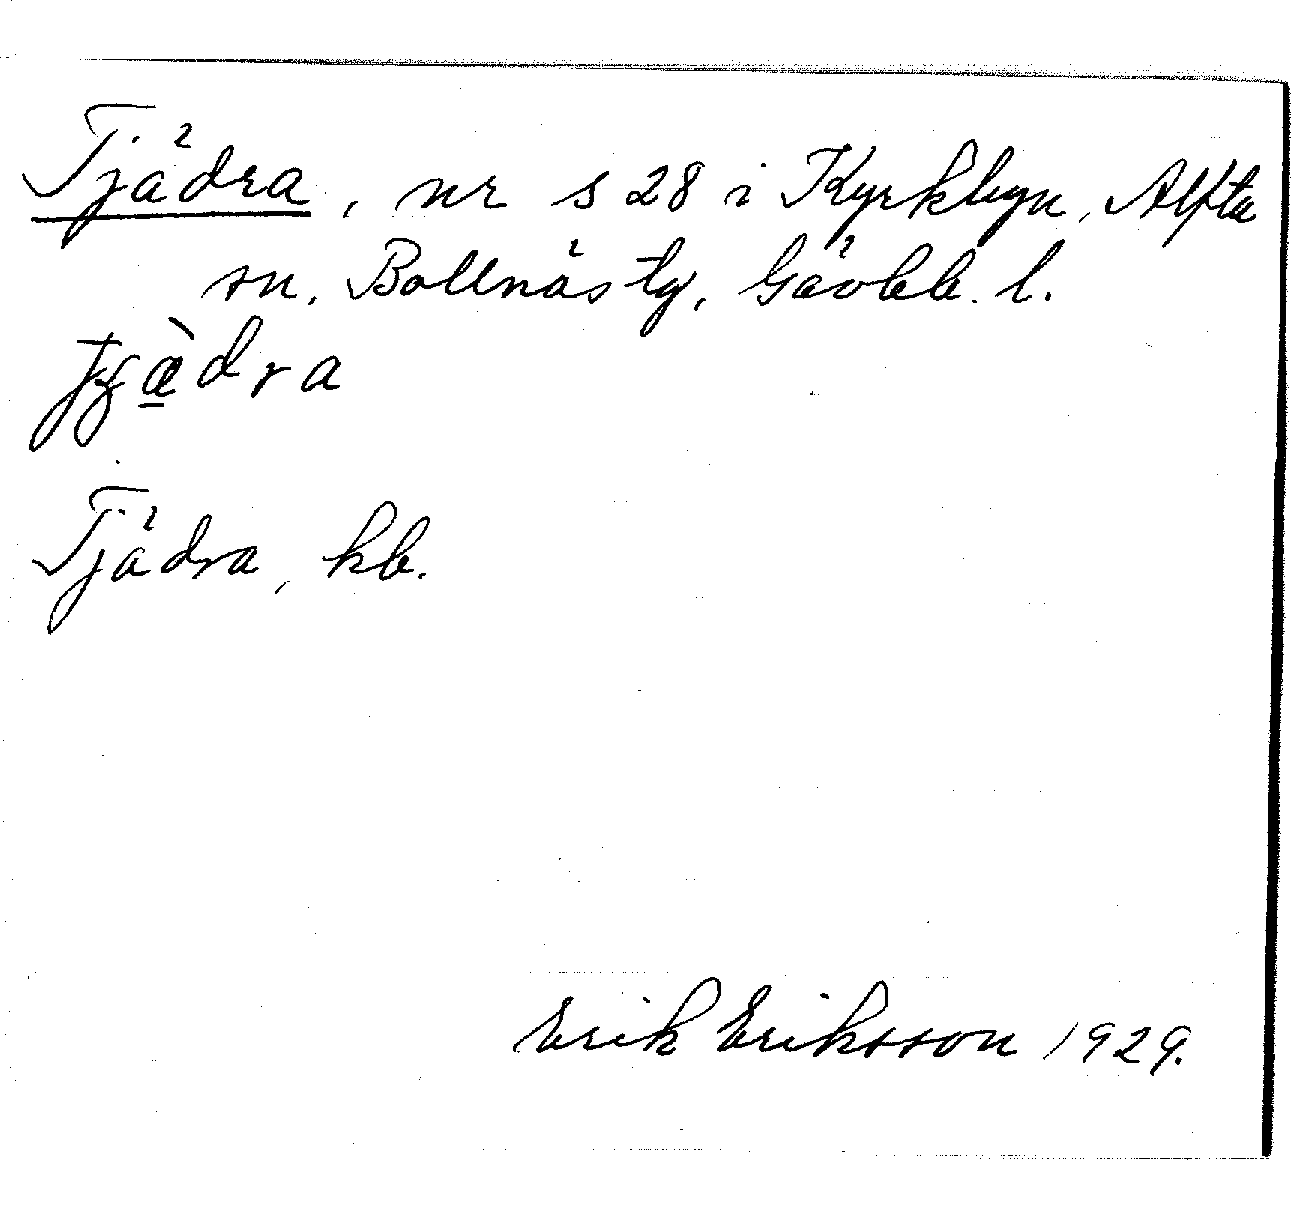 Tjädra, nr s 28 i Kyrkbyn, Alfta
sn, Bollnäs tg, Gävleb. l.
dra
Tjädra, kb.
Erik Eriksson 1929.